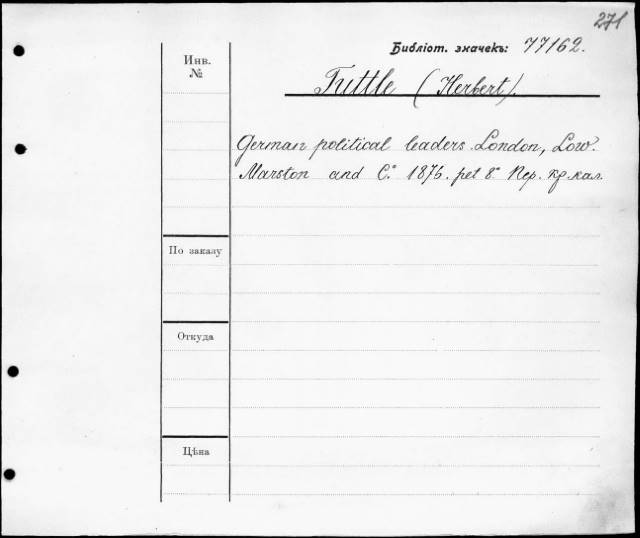 271
Библіот. значекъ: 77162.
Инв.
№
Tuttle (Herbert).
German political leaders. London, Low.
Marston and C.° 1876. pet 8.° Пер. кр. кал.
По заказу
Откуда
Цѣна